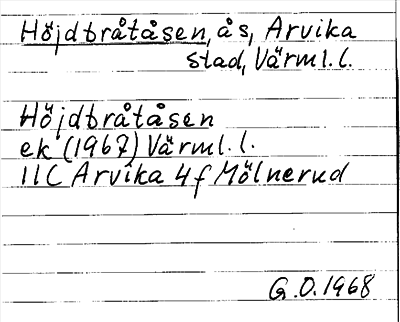 Höjdbråtåsen, ås, Arvika
stad, Värml.l.
Höjdbråtåsen
ek (1967) Värml.l.
11C Arvika 4f Mölnerud
G.O.1968